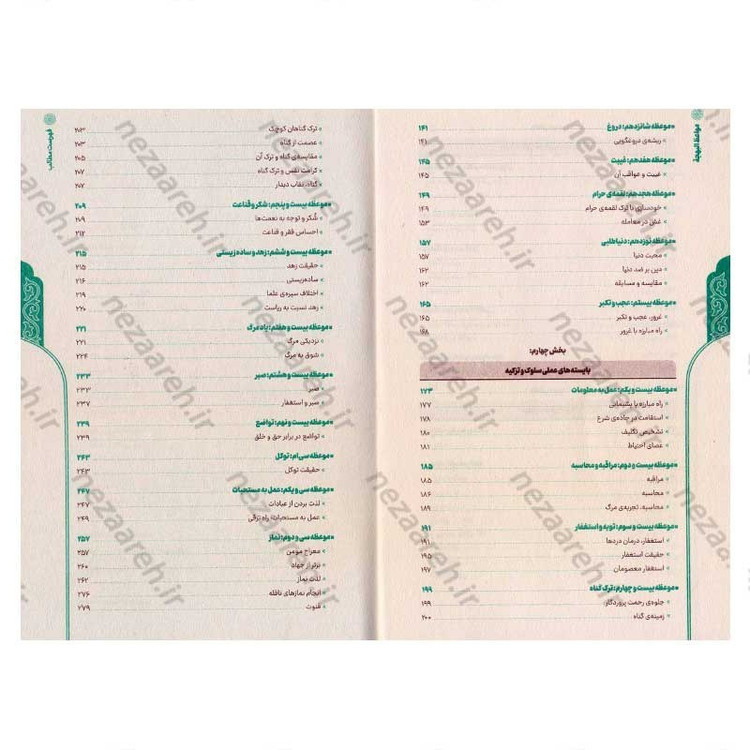 مواعظ البهجة
موعظه شانزدهم: دروغ ۱۴۱
ریشه‌ی دروغگویی ۱۴۱
موعظه هفدهم: غیبت ۱۴۵
غیبت و عواقب آن ۱۴۵
موعظه هجدهم: لقمه‌ی حرام ۱۴۹
خودسازی با ترک لقمه‌ی حرام ۱۴۹
غش در معامله ۱۵۳
موعظه نوزدهم: دنیاطلبی ۱۵۷
محبت دنیا ۱۵۷
دین بر ضد دنیا ۱۶۲
مقایسه و مسابقه ۱۶۲
موعظه بیستم: عجب و تکبر ۱۶۵
غرور، عجب و تکبر ۱۶۵
راه مبارزه با غرور ۱۶۸
بخش چهارم:
بایسته‌های عملی سلوک و تزکیه
موعظه بیست و یکم: عمل به معلومات ۱۷۳
راه مبارزه با پشیمانی ۱۷۷
استقامت در جاده‌ی شرع ۱۷۸
تشخیص تکلیف ۱۸۰
عصای احتیاط ۱۸۱
موعظه بیست و دوم: مراقبه و محاسبه ۱۸۵
مراقبه ۱۸۵
محاسبه ۱۸۶
محاسبه، تجربه‌ی مرگ ۱۸۹
موعظه بیست و سوم: توبه و استغفار ۱۹۱
استغفار، درمان دردها ۱۹۱
حقیقت استغفار ۱۹۵
استغفار معصومان ۱۹۷
موعظه بیست و چهارم: ترک گناه ۱۹۹
جلوه‌ی رحمت پروردگار ۱۹۹
زمینه‌ی گناه ۲۰۰
فهرست مطالب
ترک گناهان کوچک ۲۰۳
عصمت از گناه ۲۰۳
مقایسه‌ی گناه و ترک آن ۲۰۵
کرامت نفس و ترک گناه ۲۰۷
گناه، نقاب دیدار ۲۰۷
موعظه بیست و پنجم: شکر و قناعت ۲۰۹
شُکر و توجه به نعمت‌ها ۲۰۹
احساس فقر و قناعت ۲۱۲
موعظه بیست و ششم: زهد و ساده‌زیستی ۲۱۵
حقیقت زهد ۲۱۵
ساده‌زیستی ۲۱۶
اختلاف سیره‌ی علما ۲۱۹
زهد نسبت به ریاست ۲۲۰
موعظه بیست و هفتم: یاد مرگ ۲۲۱
نزدیکی مرگ ۲۲۱
شوق به مرگ ۲۲۴
موعظه بیست و هشتم: صبر ۲۳۳
صبر ۲۳۳
صبر و استغفار ۲۳۷
موعظه بیست و نهم: تواضع ۲۳۹
تواضع در برابر حق و خلق ۲۳۹
موعظه سی‌اُم: توکل ۲۴۳
حقیقت توکل ۲۴۳
موعظه سی و یکم: عمل به مستحبات ۲۴۷
لذت بردن از عبادات ۲۴۷
عمل به مستحبات؛ راه ترقی ۲۴۹
موعظه سی و دوم: نماز ۲۵۷
معراج مومن ۲۵۷
برتر از جهاد ۲۶۰
لذت نماز ۲۶۲
انجام نمازهای نافله ۲۷۶
قنوت ۲۷۹
nezaareh.ir